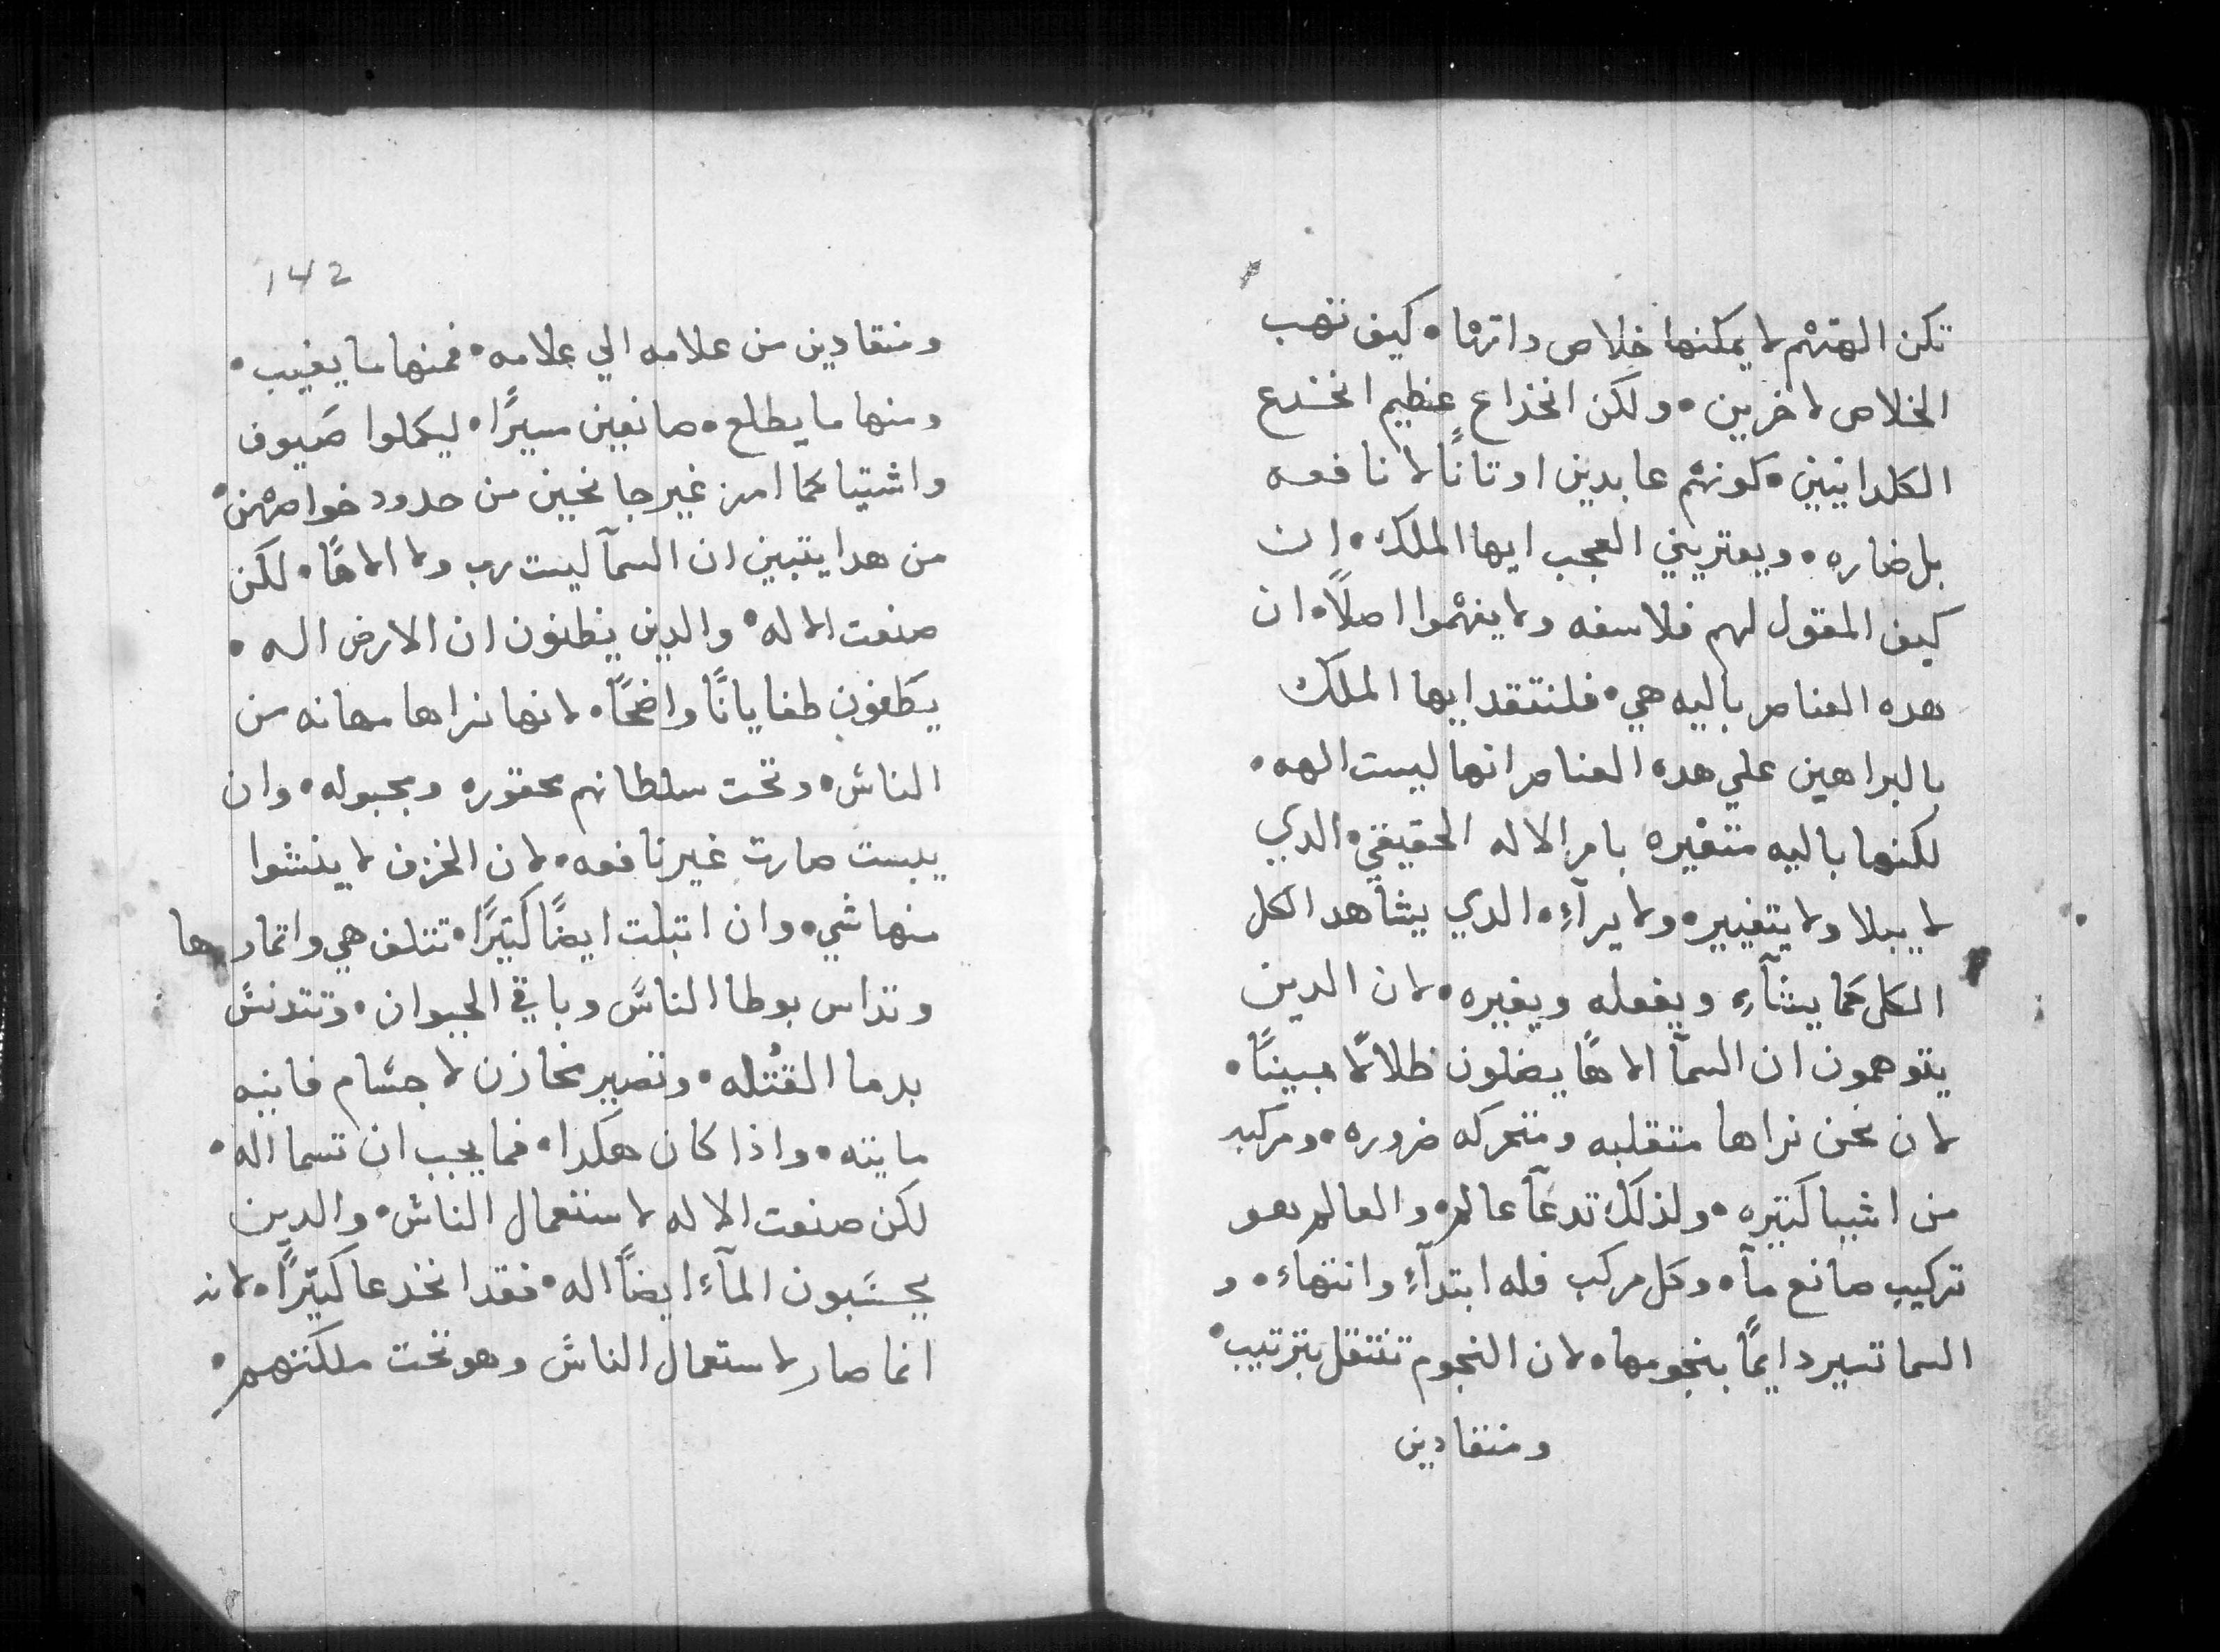 تكن الهتهم لا يمكنها خلاص داتها • كيف تهب
الخلاص لاخرين • ولكن انخداع عظيم انخدع
الكلدانيين • كونهم عابدين اوتانًا لا نافعه
بل ضاره • ويعتريني العجب ايها الملك • ان
كيف المقول لهم فلاسفه ولا يفهموا اصلاً • ان
هده العناصر باليه هي • فلنتقد ايها الملك
بالبراهين علي هده العناصر انها ليست الهه •
لكنها باليه متغيره بامر الاله الحقيقي • الدي
لا يبلا ولا يتغيير • ولا يرآءِ • الدي يشاهد الكل
الكل كما يشآءِ ويفعله ويغيره • لان الدين
يتوهمون ان السمآ الاهًا يضلون ظلالاً مبينًا •
لان نحن نراها متقلبه ومتحركه ضروره • ومركبه
من اشيا كتيره • ولذلك تدعآ عالم • والعالم هو
تركيب صانع مآ • وكل مركب فله ابتدآءِ وانتهاء • و
السما تسير دايمًا بنجومها • لان النجوم تنتقل بترتيب •
ومنقادين
142
ومنقادين من علامه الي علامه • فمنها ما يغيب •
ومنها ما يطلع • صانعين سيرًا • ليكملوا صَيوف
واشتيا كما امر غير جانحين من حدود خواصهن •
من هدا يتبين ان السمآ ليست رب ولا الاهًا • لكن
صنعت الاله • والدين يظنون ان الارض اله •
يطغون طغايانًا واضحًا • لانها نراها مهانه من
الناس • وتحت سلطانهم محقوره ومجبوله • وان
يبست صارت غير نافعه • لان الخزف لا ينشوا
منها شي • وان اتبلت ايضًا كتيرًا • تتلف هي واتمارها
وتداس بوطا الناس وباقي الحيوان • وتتدنس
بدما القتله • وتصير مخازن لاجسام فانيه
مايته • واذا كان هكدا • فما يجب ان تسما اله •
لكن صنعت الاله لاستعمال الناس • والدين
يحسَبون المآء ايضًا اله • فقد انخدعا كتيرًا • لانه
انما صار لاستعمال الناس وهو تحت ملكتهم •